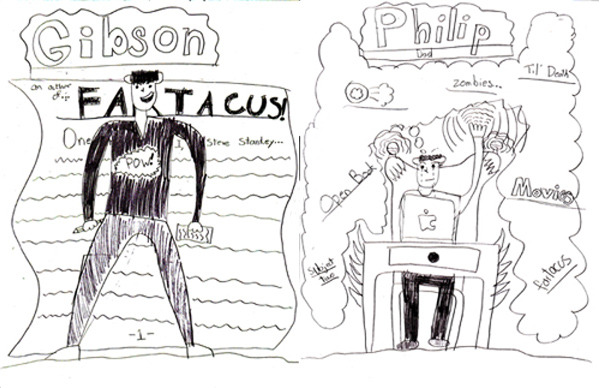 Gibson
an author
of...
FARTACUS!
One I, Steve Stanley...
POW!
-1-
Philip
Dad
Zombies...
Til' Death
Open Book
Movies
fartacus